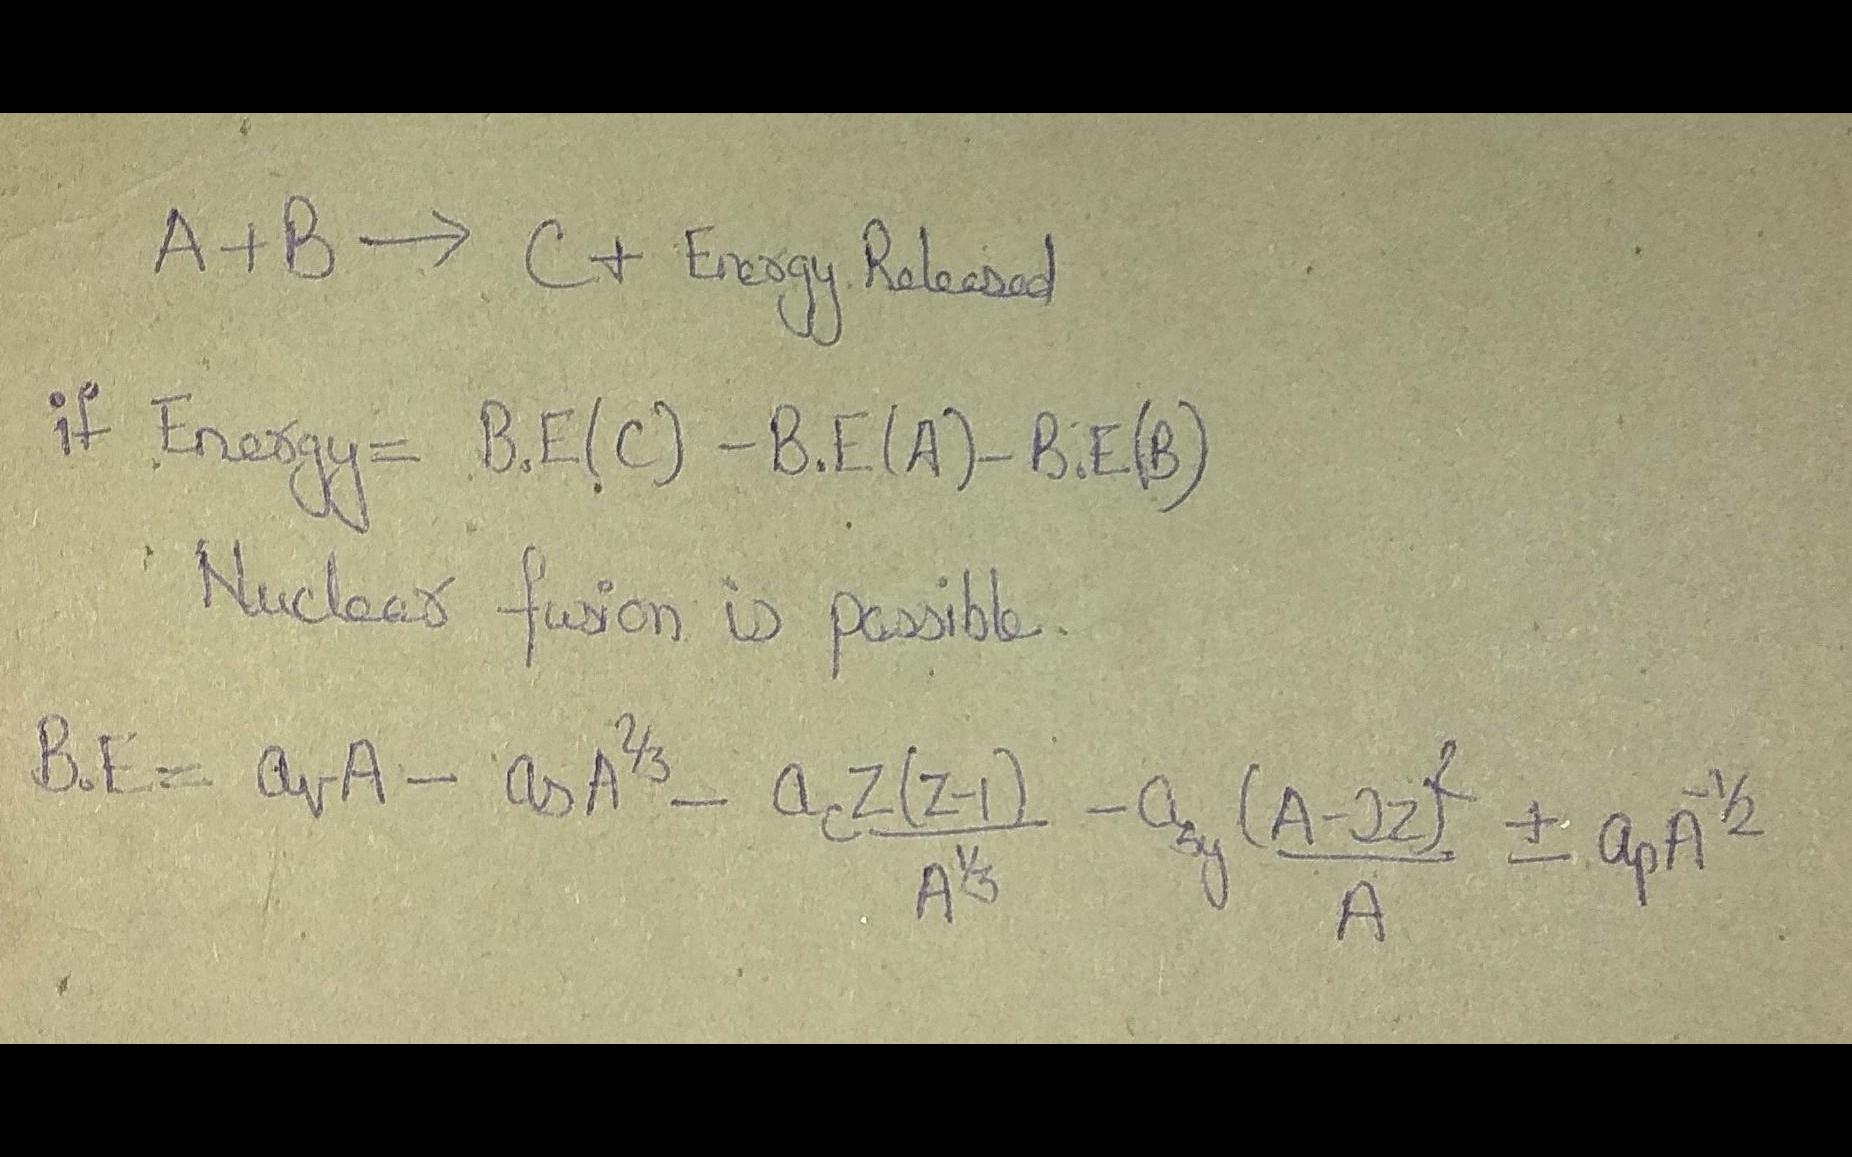 A+B → C+ Energy Released
if Energy = B.E(C) - B.E(A) - B.E(B)
Nuclear fusion is possible.
B.E = a_v A - a_s A^{2/3} - a_c Z(Z-1)/A^{1/3} - a_{sy} (A-2Z)^2/A ± a_p A^{-1/2}